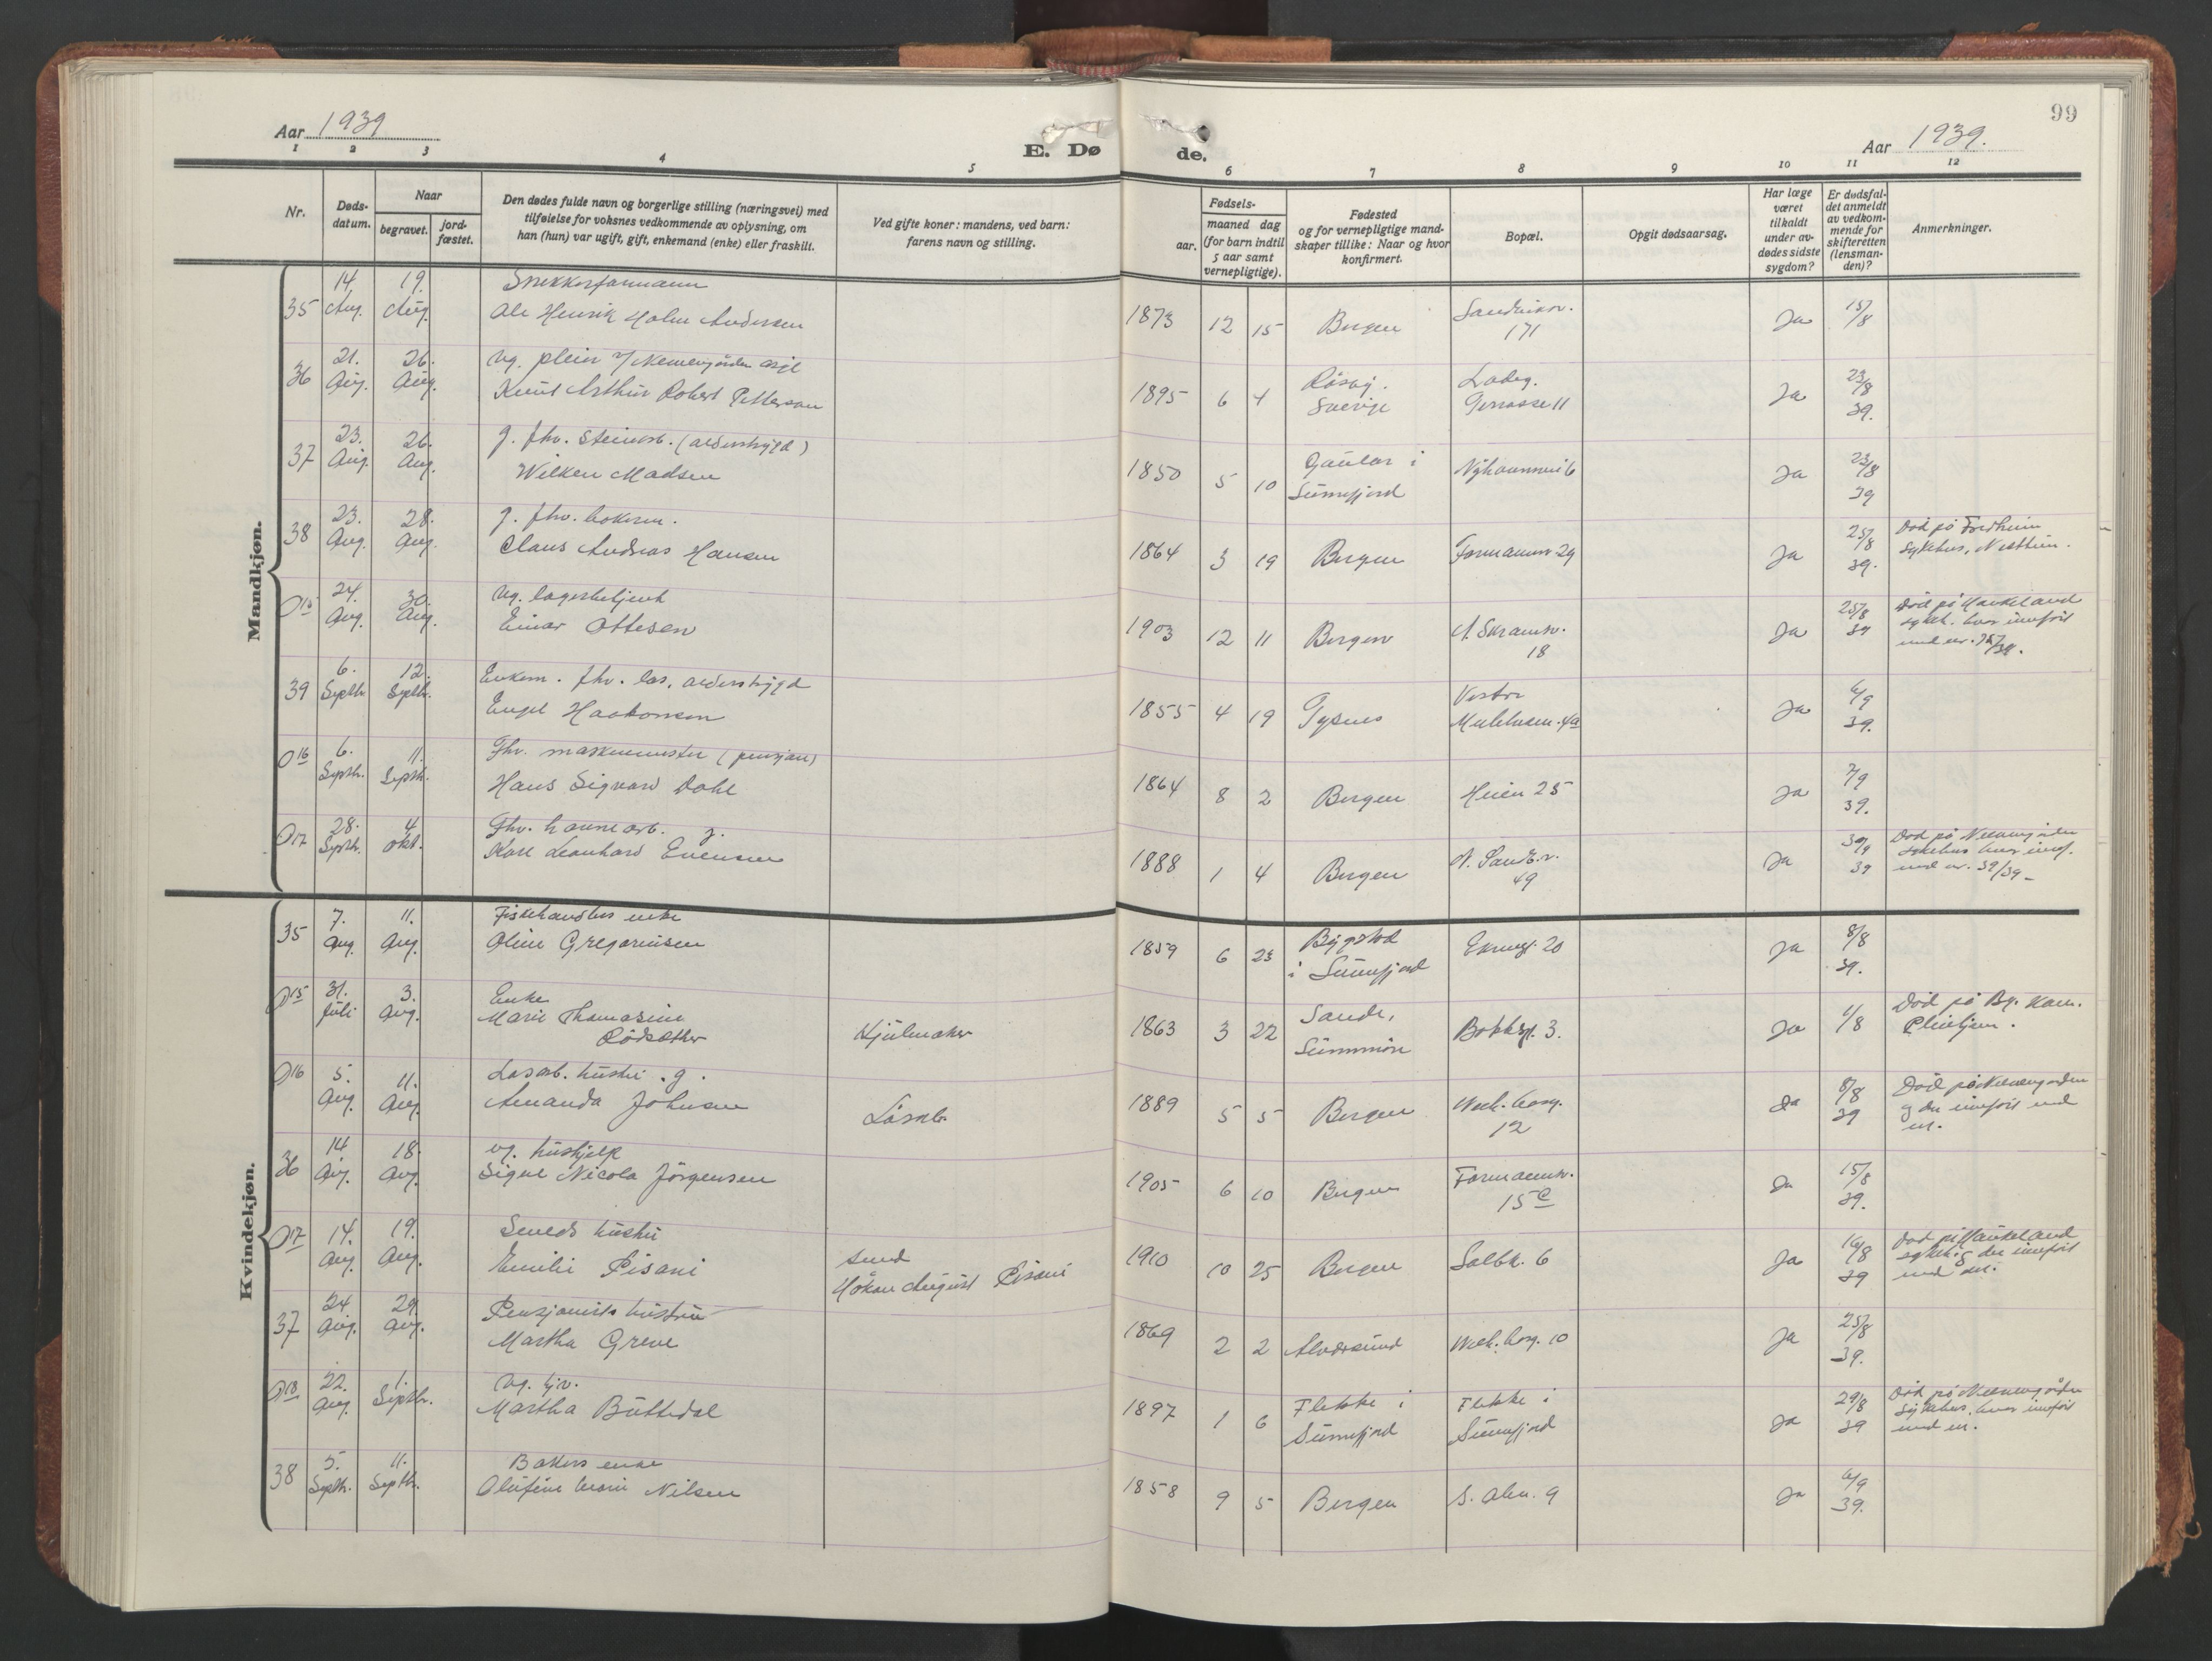 99
Aar 1939
E. Døde.
Aar 1939.
1 2 3 4 5 6 7 8 9 10 11 12
Nr.
Døds-
datum.
Naar
begravet.
jord-
fæstet.
Den dødes fulde navn og borgerlige stilling (næringsvei) med
tilføielse for voksnes vedkommende av oplysning, om
han (hun) var ugift, gift, enkemand (enke) eller fraskilt.
Ved gifte koner: mandens, ved barn:
farens navn og stilling.
Fødsels-
aar.
maaned dag
(for barn indtil
5 aar samt
vernepligtige).
Fødested
og for vernepligtige mand-
skaper tillike: Naar og hvor
konfirmert.
Bopæl.
Opgit dødsaarsag.
Har læge
været
tilkaldt
under av-
dødes sidste
sygdom?
Er dødsfal-
det anmeldt
av vedkom-
mende for
skifteretten
(lensman-
den)?
Anmerkninger.
Mandkjøn.
35 14. Aug. 19. Aug. Snekkerformann
Ole Henrik Holm Andersen 1873 12 15 Bergen Sandviksv. 171 Ja 15/8
36 21. Aug. 26. Aug. ug. pleier v/ Neevengården asyl
Knut Arthur Robert Petterson 1895 6 4 Sverige Ladeg. Terrasse 11 Ja 23/8 39.
37 23. Aug. 26. Aug. g. fhv. steinarb. (alderstrygd)
Wilken Madsen 1850 5 10 Gaular i Sunnfjord Nyhavnsvei 6 Ja 23/8 39
38 23. Aug. 28. Aug. g. fhv. bokerm.
Claus Andreas Hansen 1864 3 19 Bergen Formannsv. 29 Ja 25/8 39. Død på Fredheim
sykehus, Nesttun.
O 15 24. Aug. 30. Aug. ug. lagerbetjent
Einar Ottesen 1903 12 11 Bergen A. Skramsv. 18 Ja 25/8 39 Død på Haukeland
sykeh. hvor innført
med nr.
39 6. Septbr. 12. Septbr. Enkem. fhv. løs. alderstrygd
Engel Haakonsen 1855 4 19 Tysnes Vestre
Muhlenbr. 4a Ja 6/9 39.
O 16 6. Septbr. 11. Septbr. Fhv. maskinmester (pensjon)
Hans Sigvard Dahl 1864 8 2 Bergen Heien 25 Ja 7/9 39.
O 17 28. Septbr. 4 Okt. Fhv. havnearb. g.
Karl Leonhard Evensen 1888 1 4 Bergen N. Sandv. v. 49 Ja 30/9 39 Død på Neevengården
sykehus hvor innf.
med nr. 39/39
Kvindekjøn.
35 7. Aug. 11. Aug. Fiskehandlers enke
Oline Gregoriusen 1859 6 23 Bygstad
i Sunnfjord 20 Ja 8/8 39.
O 15 31. Juli 3. Aug. Enke
Marie Thomasine
Rødsæther Hjulmaker 1863 3 22 Sande,
Sunnmøre Bakkegt. 3. Ja 1/8 Død på Bg. Kom.
Pleiehjem.
O 16 5. Aug. 11. Aug. Løsarb. hustru. g.
Amanda Johnsen Løsarb. 1889 5 5 Bergen Welh. borg. 12 Ja 8/8 39 Død på Neevengården
og der innført med
nr.
36 14 Aug. 18. Aug. ug. hushjelp
Signe Nicola Jørgensen 1905 6 10 Bergen Formannsv. 15 C Ja 15/8 39.
O 17 14. Aug. 19. Aug. Smeds hustru
Emilie Pisani smed
Håkon August Pisani 1910 10 25 Bergen Salbk. 6 Ja 16/8 39 Død på Haukeland
sykeh. og der innført
med nr.
37 24. Aug. 29. Aug. Pensjonists hustru
Martha Greve 1869 2 2 Alversund Welh. borg. 10 Ja 25/8 39.
O 18 22. Aug. 1. Septbr. ug. hjv.
Martha Buttedal 1897 1 6 Flekke i
Sunnfjord Flekke i
Sunnfjord Ja 29/8 39 Død på Neevengården
sykehus, hvor innført
med nr.
38 5. Septbr. 11. Septbr. Bakers enke
Olufine Marie Nilsen 1858 9 5 Bergen S. Alm. 9 Ja 6/9 39.